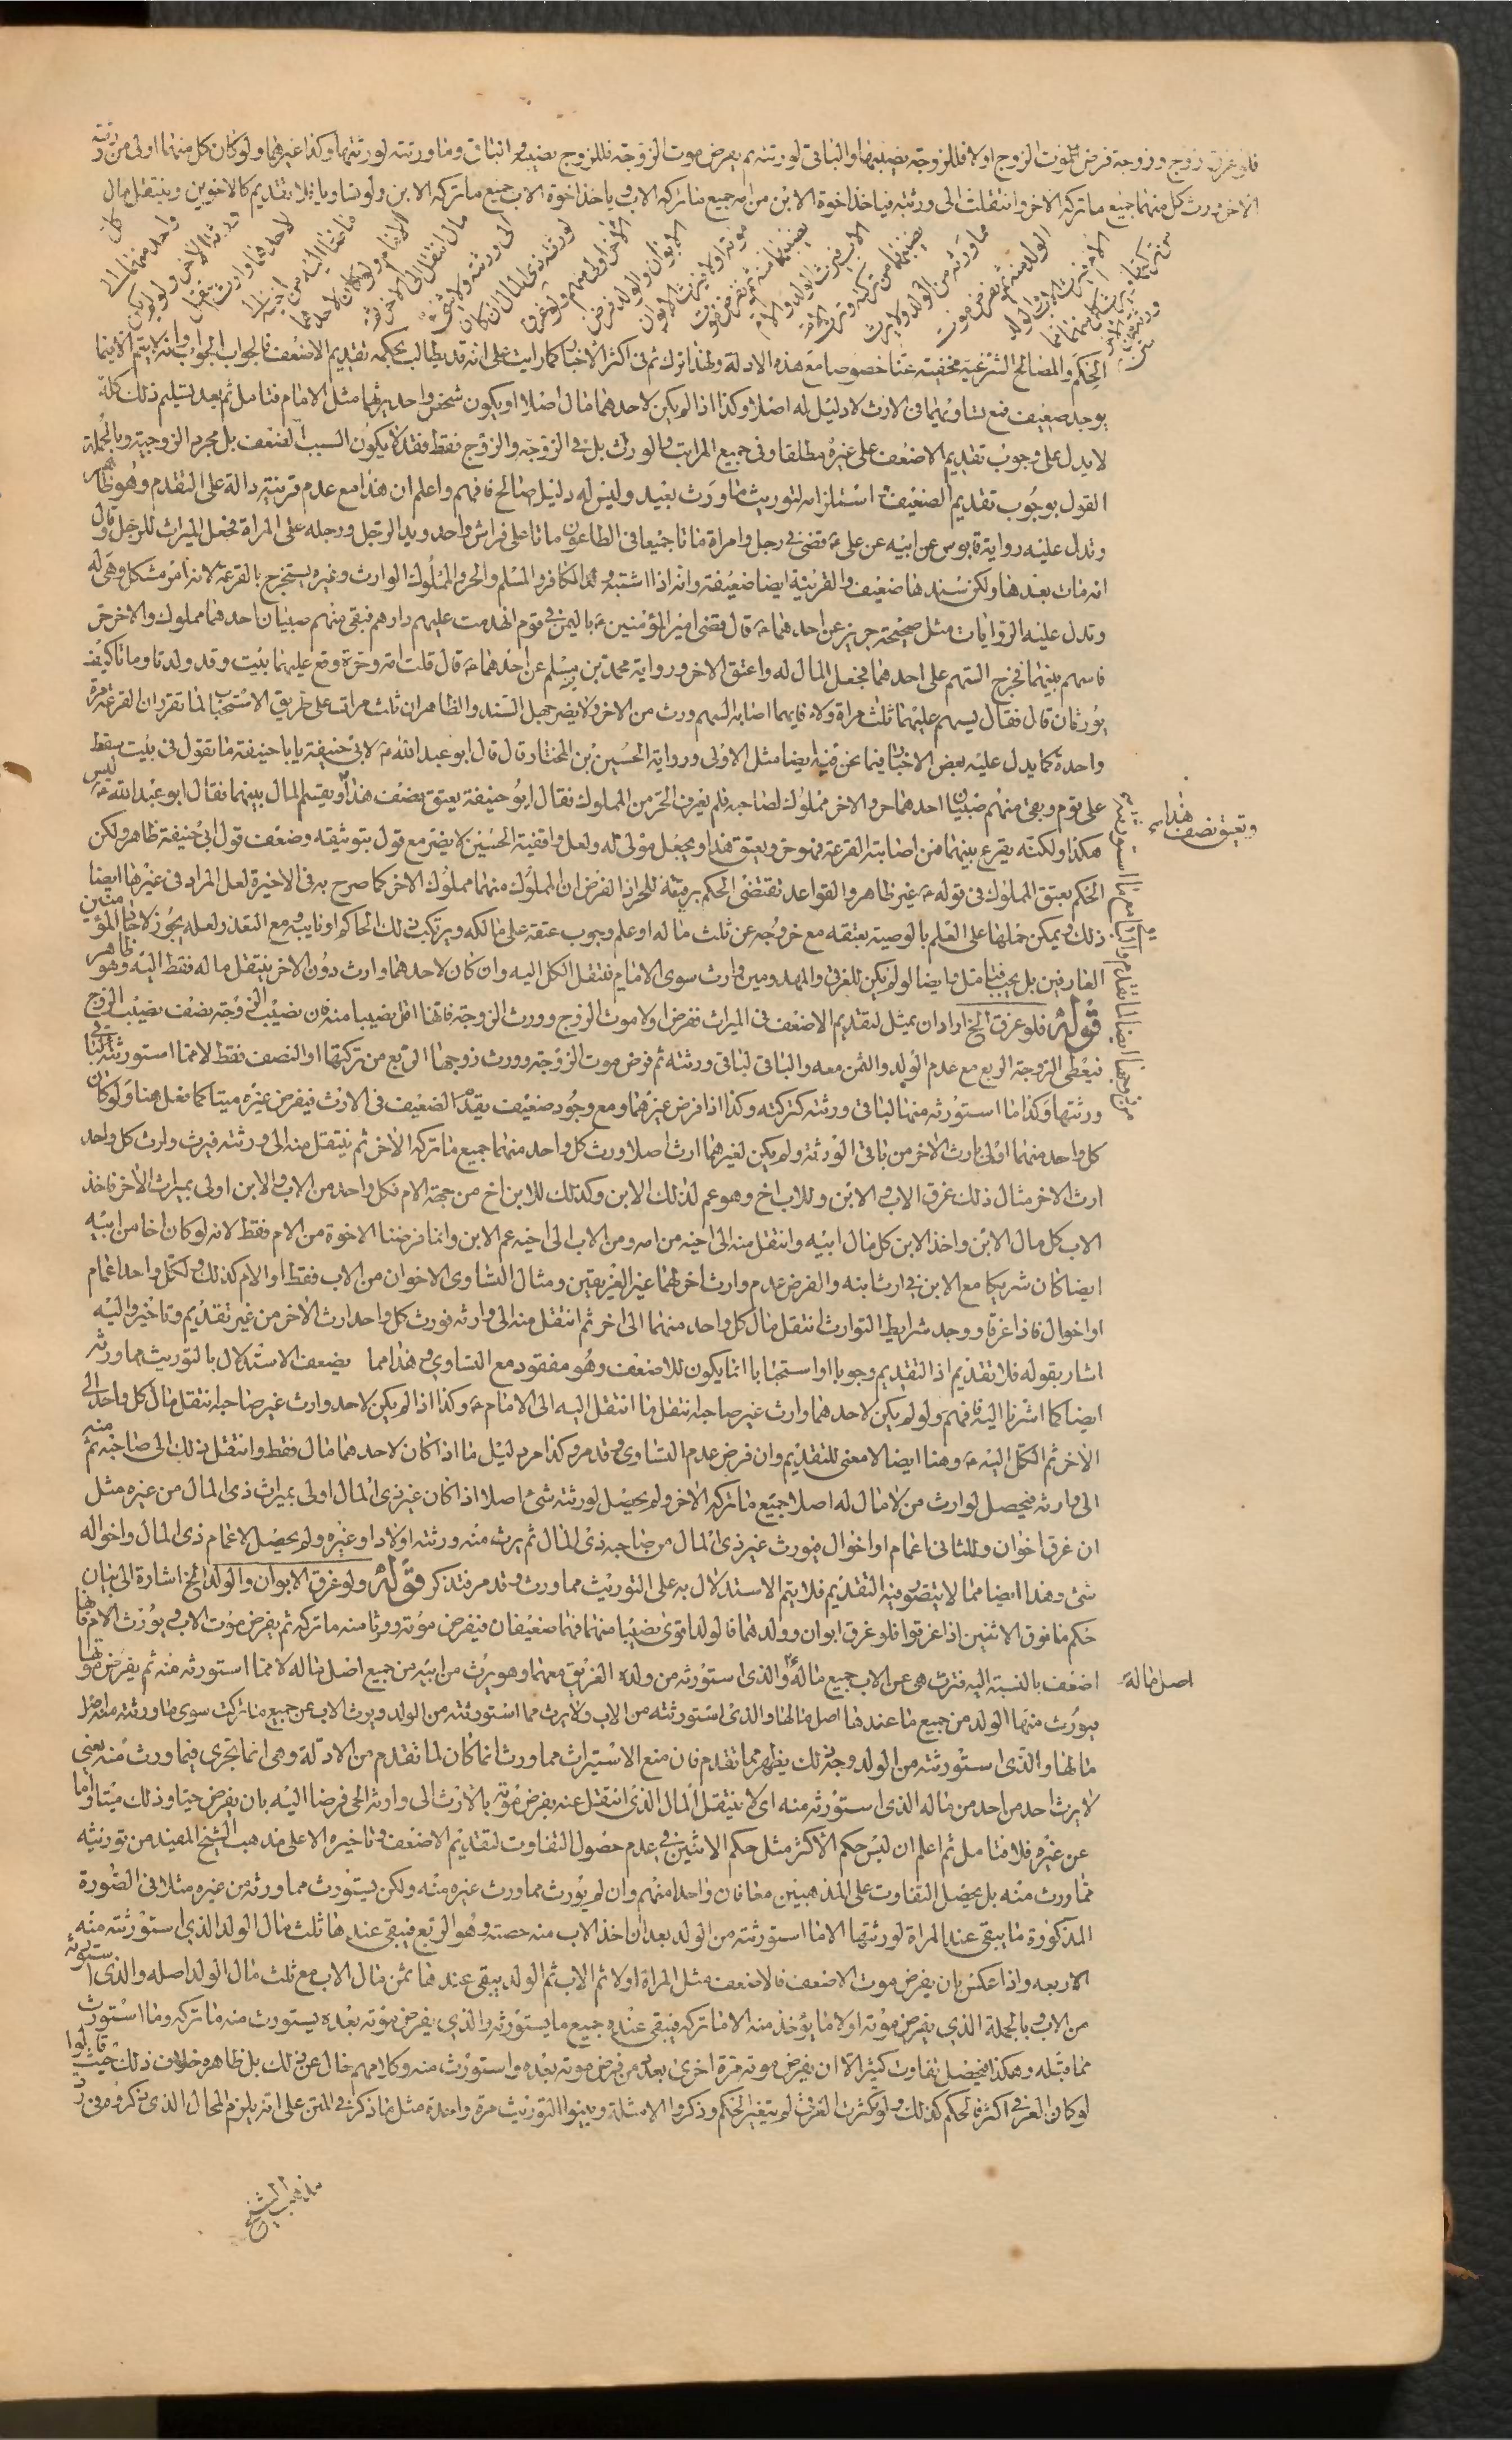 فلو غرق زوج وزوجة فرض موت الزوج اولا فللزوجة نصيبها والباقي لورثته ثم يفرض موت الزوجة فللزوج نصيبه وما ورثته لورثتها وكذا غيرهما ولو كان كل منهما اولى من ورثة
الاخر ورث كل منهما جميع ما تركه الاخر وانتقلت الى ورثته فياخذ اخوة الابن من امه جميع ما تركه الاب وياخذ اخوة الاب جميع ما تركه الابن ولو تساويا فلا تقديم كالاخوين وينتقل مال
كل واحد منهما الى
ورثة الاخر ولو لم يكن
لاحدهما وارث
الامام ولو كان لاحدهما
مال انتقل الى الاخر ثم
الى ورثته ولا شيء
لورثة ذي المال ان كان
الاخر اولى منهم ولو غرق
الابوان والولد فرض
موته اولا فيرث الابوان
نصيبهما منه ثم يفرض موت
الاب فيرث الولد والام
نصيبهما من تركته
مما ورثه من الولد ولا يرث
الولد منه ثم يفرض موت
الام فيرث الاب والولد
الحكم والمصالح الشرعية مخفية عنا خصوصا مع هذه الادلة ولهذا ترك ثم في اكثر الاخبار كما رايت على انه قد يطالب بحكمة تقديم الاضعف فالجواب الجواب وانه لا يتم الا فيما
يوجد ضعيف فمع تساويهما في الارث لا دليل له اصلا وكذا اذا لم يكن لاحدهما مال اصلا او يكون شخص واحد يرثها مثل الامام فتامل ثم بعد تسليم ذلك كله
لا يدل على وجوب تقديم الاضعف على غيره مطلقا وفي جميع المراتب والورث بل في الزوجة والزوج فقط فقد لا يكون السبب الضعف بل مجرد الزوجية وبالجملة
القول بوجوب تقديم الضعيف استلزامه لتوريث ما ورث بعيد وليس له دليل صالح فافهم واعلم ان هذا مع عدم قرينة دالة على التقدم وهو ظاهر
وتدل عليه رواية قابوس عن ابيه عن علي ع قضى في رجل وامراة ماتا جميعا في الطاعون ماتا على فراش واحد ويد الرجل ورجله على المراة فجعل الميراث للرجل وقال
انه مات بعدها ولكن سندها ضعيف والقرينة ايضا ضعيفة وانه اذا اشتبه الكافر والمسلم والحر والمملوك الوارث وغيره يستخرج بالقرعة لانه امر مشكل وهي له
وتدل عليه الروايات مثل صحيحة حريز عن احدهما ع قال قضى امير المؤمنين ع باليمن في قوم انهدمت عليهم دارهم فبقي منهم صبيان احدهما مملوك والاخر حر
فاسهم بينهما فخرج السهم على احدهما فجعل المال له واعتق الاخر ورواية محمد بن مسلم عن احدهما ع قال قلت امة وحرة وقع عليهما بيت وقد ولدتا وماتا كيف
يورثان قال فقال يسهم عليهما ثلث مراة ولاء فايهما اصابه السهم ورث من الاخر ولا يضر جهل السند والظاهر ان ثلث مرات على طريق الاستحباب لما تقرر ان القرعة مرة
واحدة كما يدل عليه بعض الاخبار فيما نحن فيه ايضا مثل الاولى ورواية الحسين بن المختار قال قال ابو عبد الله ع لابي حنيفة يا ابا حنيفة ما تقول في بيت سقط
على قوم وبقي منهم صبيان احدهما حر والاخر مملوك لصاحبه فلم يعرف الحر من المملوك فقال ابو حنيفة يعتق نصف هذا ويقسم المال بينهما فقال ابو عبد الله ع ليس
ويعتق نصف هذا
هكذا ولكنه يقرع بينهما فمن اصابته القرعة فهو حر ويعتق هذا ويجعل مولى له ولعل واقفية الحسين لا يضر مع قول بتوثيقه وضعف قول ابي حنيفة ظاهر ولكن
الحكم بعتق المملوك في قوله ع غير ظاهر والقواعد تقتضي الحكم برقيته للحر اذ الفرض ان المملوك منهما مملوك الاخر كما صرح به في الاخيرة لعل المراد في غيرها ايضا
ذلك ويمكن حملها على العلم بالوصية بعتقه مع خروجه عن ثلث ماله او علم وجوب عتقه على مالكه ويرتكب ذلك الحاكم او نايبه ومع التعذر لعله يجوز لاحاد المؤمنين
العارفين بل يجب فتامل ايضا لو لم يكن للغرقى والمهدومين وارث سوى الامام فتنقل الكل اليه وان كان لاحدهما وارث دون الاخر ينتقل ماله فقط اليه وهو ظاهر
قوله فلو غرق الخ اراد ان يمثل لتقديم الاضعف في الميراث ففرض اولا موت الزوج وورث الزوجة فانها اقل نصيبا منه فان نصيب الزوجة نصف نصيب الزوج
فيعطى الزوجة الربع مع عدم الولد والثمن معه والباقي لباقي ورثته ثم فرض موت الزوجة وورث زوجها الربع من تركتها او النصف فقط لا مما استورثته
ورثتها وكذا ما استورثه منها لباقي ورثته كتركته وكذا اذا فرض غيرهما ومع وجود ضعيف يقدم الضعيف في الارث فيفرض غيره ميتا كما فعل هنا ولو كان
كل واحد منهما اولى بارث الاخر من باقي الورثة ولم يكن لغيرهما ارث اصلا ورث كل واحد منهما جميع ما تركه الاخر ثم ينتقل منه الى ورثته فيرث وارث كل واحد
ارث الاخر مثال ذلك غرق الاب والابن وللاب اخ وهو عم لذلك الابن وكذلك للابن اخ من جهة الام فكل واحد من الاب والابن اولى بميراث الاخر فاخذ
الاب كل مال الابن واخذ الابن كل مال ابيه وانتقل منه الى اخيه من امه ومن الاب الى اخيه عم الابن وانما فرضنا الاخوة من الام فقط لانه لو كان اخا من ابيه
ايضا كان شريكا مع الابن في ارث ابنه والفرض عدم وارث اخر لهما غير الغريقين ومثال التساوي الاخوان من الاب فقط او الام كذلك ولكل واحد اعمام
او اخوال فاذا غرقا ووجد شرايط التوارث انتقل مال كل واحد منهما الى اخر ثم انتقل منه الى وارثه فورث كل واحد ارث الاخر من غير تقديم وتاخير واليه
اشار بقوله فلا تقديم اذ التقديم وجوبا او استحبابا انما يكون للاضعف وهو مفقود مع التساوي وهذا مما يضعف الاستدلال بالتوريث مما ورثه
ايضا كما اشرنا اليه فافهم ولو لم يكن لاحدهما وارث غير صاحبه انتقل ما انتقل اليه الى الامام ع وكذا اذا لم يكن لاحد وارث غير صاحبه انتقل مال كل واحد الى
الاخر ثم الكل اليه ع وهنا ايضا لا معنى للتقديم وان فرض عدم التساوي وقد مر وكذا مر دليل ما اذا كان لاحدهما مال فقط وانتقل ذلك الى صاحبه ثم منه
الى وارثه فيحصل لوارث من لا مال له اصلا جميع ما تركه الاخر ولم يحصل لورثته شيء اصلا اذا كان غير ذي المال اولى بميراث ذي المال من غيره مثل
ان غرق اخوان وللثاني اعمام او اخوال فيورث غير ذي المال من صاحبه ذي المال ثم يرث منه ورثته اولادا وغيره ولم يحصل لاعمام ذي المال واخواله
شئ وهذا ايضا مما لا يتصور فيه التقديم فلا يتم الاستدلال به على التوريث مما ورث وقد مر فتذكر قوله ولو غرق الابوان والولد الخ اشارة الى بيان
حكم ما فوق الاثنين اذا غرقوا فلو غرق ابوان وولدهما فالولد اقوى نصيبا منهما فهما ضعيفان فيفرض موته وورثا منه ما تركه ثم يفرض موت الاب ويورث الام فانها
اضعف بالنسبة اليه فترث هي عن الاب جميع ماله والذي استورثه من ولده الغريق معهما وهو يرث من ابيه من جميع اصل ماله لا مما استورثه منه ثم يفرض موتها
اصل ماله
فيورث منها الولد من جميع ما عندها اصل مالها والذي استورثته من الاب ولا يرث مما استورثته من الولد ويرث الاب عن جميع ما تركت سوى ما ورثته منه اصل
مالها والذي استورثته من الولد وجه ذلك يظهر مما تقدم فان منع الاستيراث مما ورث انما كان لما تقدم من الادلة وهي انما تجري فيما ورث منه يعني
لا يرث احد من احد من ماله الذي استورثه منه اي لا ينتقل المال الذي انتقل عنه بفرض موته بالارث الى وارثه الحي فرضا اليه بان يفرض حيا وذلك ميتا واما
عن غيره فلا فتامل ثم اعلم ان ليس حكم الاكثر مثل حكم الاثنين في عدم حصول التفاوت لتقديم الاضعف وتاخيره الا على مذهب الشيخ المفيد من توريثه
مما ورث منه بل يحصل التفاوت على المذهبين معا فان واحدا منهم وان لم يورث مما ورث غيره منه ولكن يستورث مما ورثه من غيره مثلا في الصورة
المذكورة ما يبقى عند المراة لورثتها الا ما استورثته من الولد بعد ان اخذ الاب منه حصته وهو الربع فيبقى عندها ثلث مال الولد الذي استورثته منه
الاربعه واذا عكس بان يفرض موت الاضعف فالاضعف مثل المراة اولا ثم الاب ثم الولد يبقى عندها ثمن مال الاب مع ثلث مال الولد اصله والذي استورثه
من الاب وبالجملة الذي يفرض موته اولا ما يؤخذ منه الا ما تركه فيبقى عنده جميع ما يستورثه والذي يفرض موته بعده يستورث منه ما تركه وما استورث
مما قبله وهكذا فيحصل تفاوت كثير الا ان يفرض موته مرة اخرى بعد من فرض موته بعده واستورث منه وكلامهم خال عن ذلك بل ظاهره خلاف ذلك حيث قالوا
لو كان الغرقى اكثر فالحكم كذلك ولو كثرت الغرقى لم يتغير الحكم وذكروا الامثلة وبينوا التوريث مرة واحدة مثل ما ذكر في المتن على انه يلزم المحال الذي ذكروه في رد
مذهب الشيخ